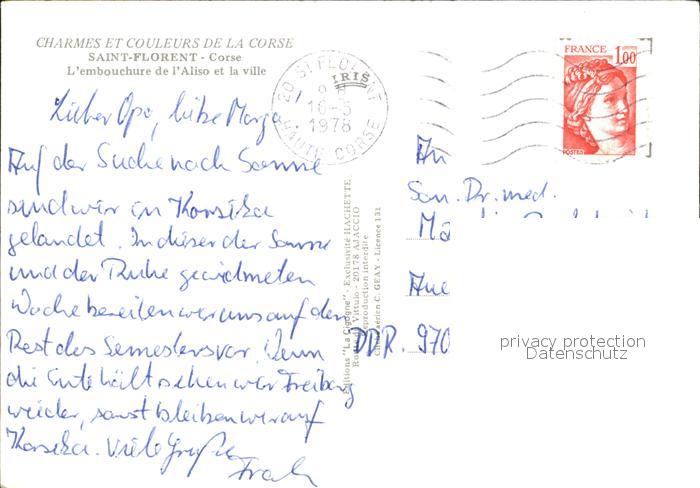 CHARMES ET COULEURS DE LA CORSE
SAINT-FLORENT - Corse
L'embouchure de l'Aliso et la ville
Lieber Opa, liebe Marga
Auf der Suche nach Sonne
sind wir in Korsika
gelandet. In dieser der Sonne
und der Ruhe gewidmeten
Woche bereiten wir uns auf den
Rest des Semesters vor. Wenn
die Ente hält sehen wir Freiberg
wieder, sonst bleiben wir auf
Korsika. Viele Grüße
Frank
20 ST FLORENT
10-5
1978
HAUTE CORSE
FRANCE 1,00
POSTES
Editions "La Cigogne" - Exclusivité HACHETTE
Vittulo - 20178 AJACCIO
reproduction interdite
C. GEAY - Licence 131
An
San. Dr. med.
Aue
DDR. 970
privacy protection
Datenschutz